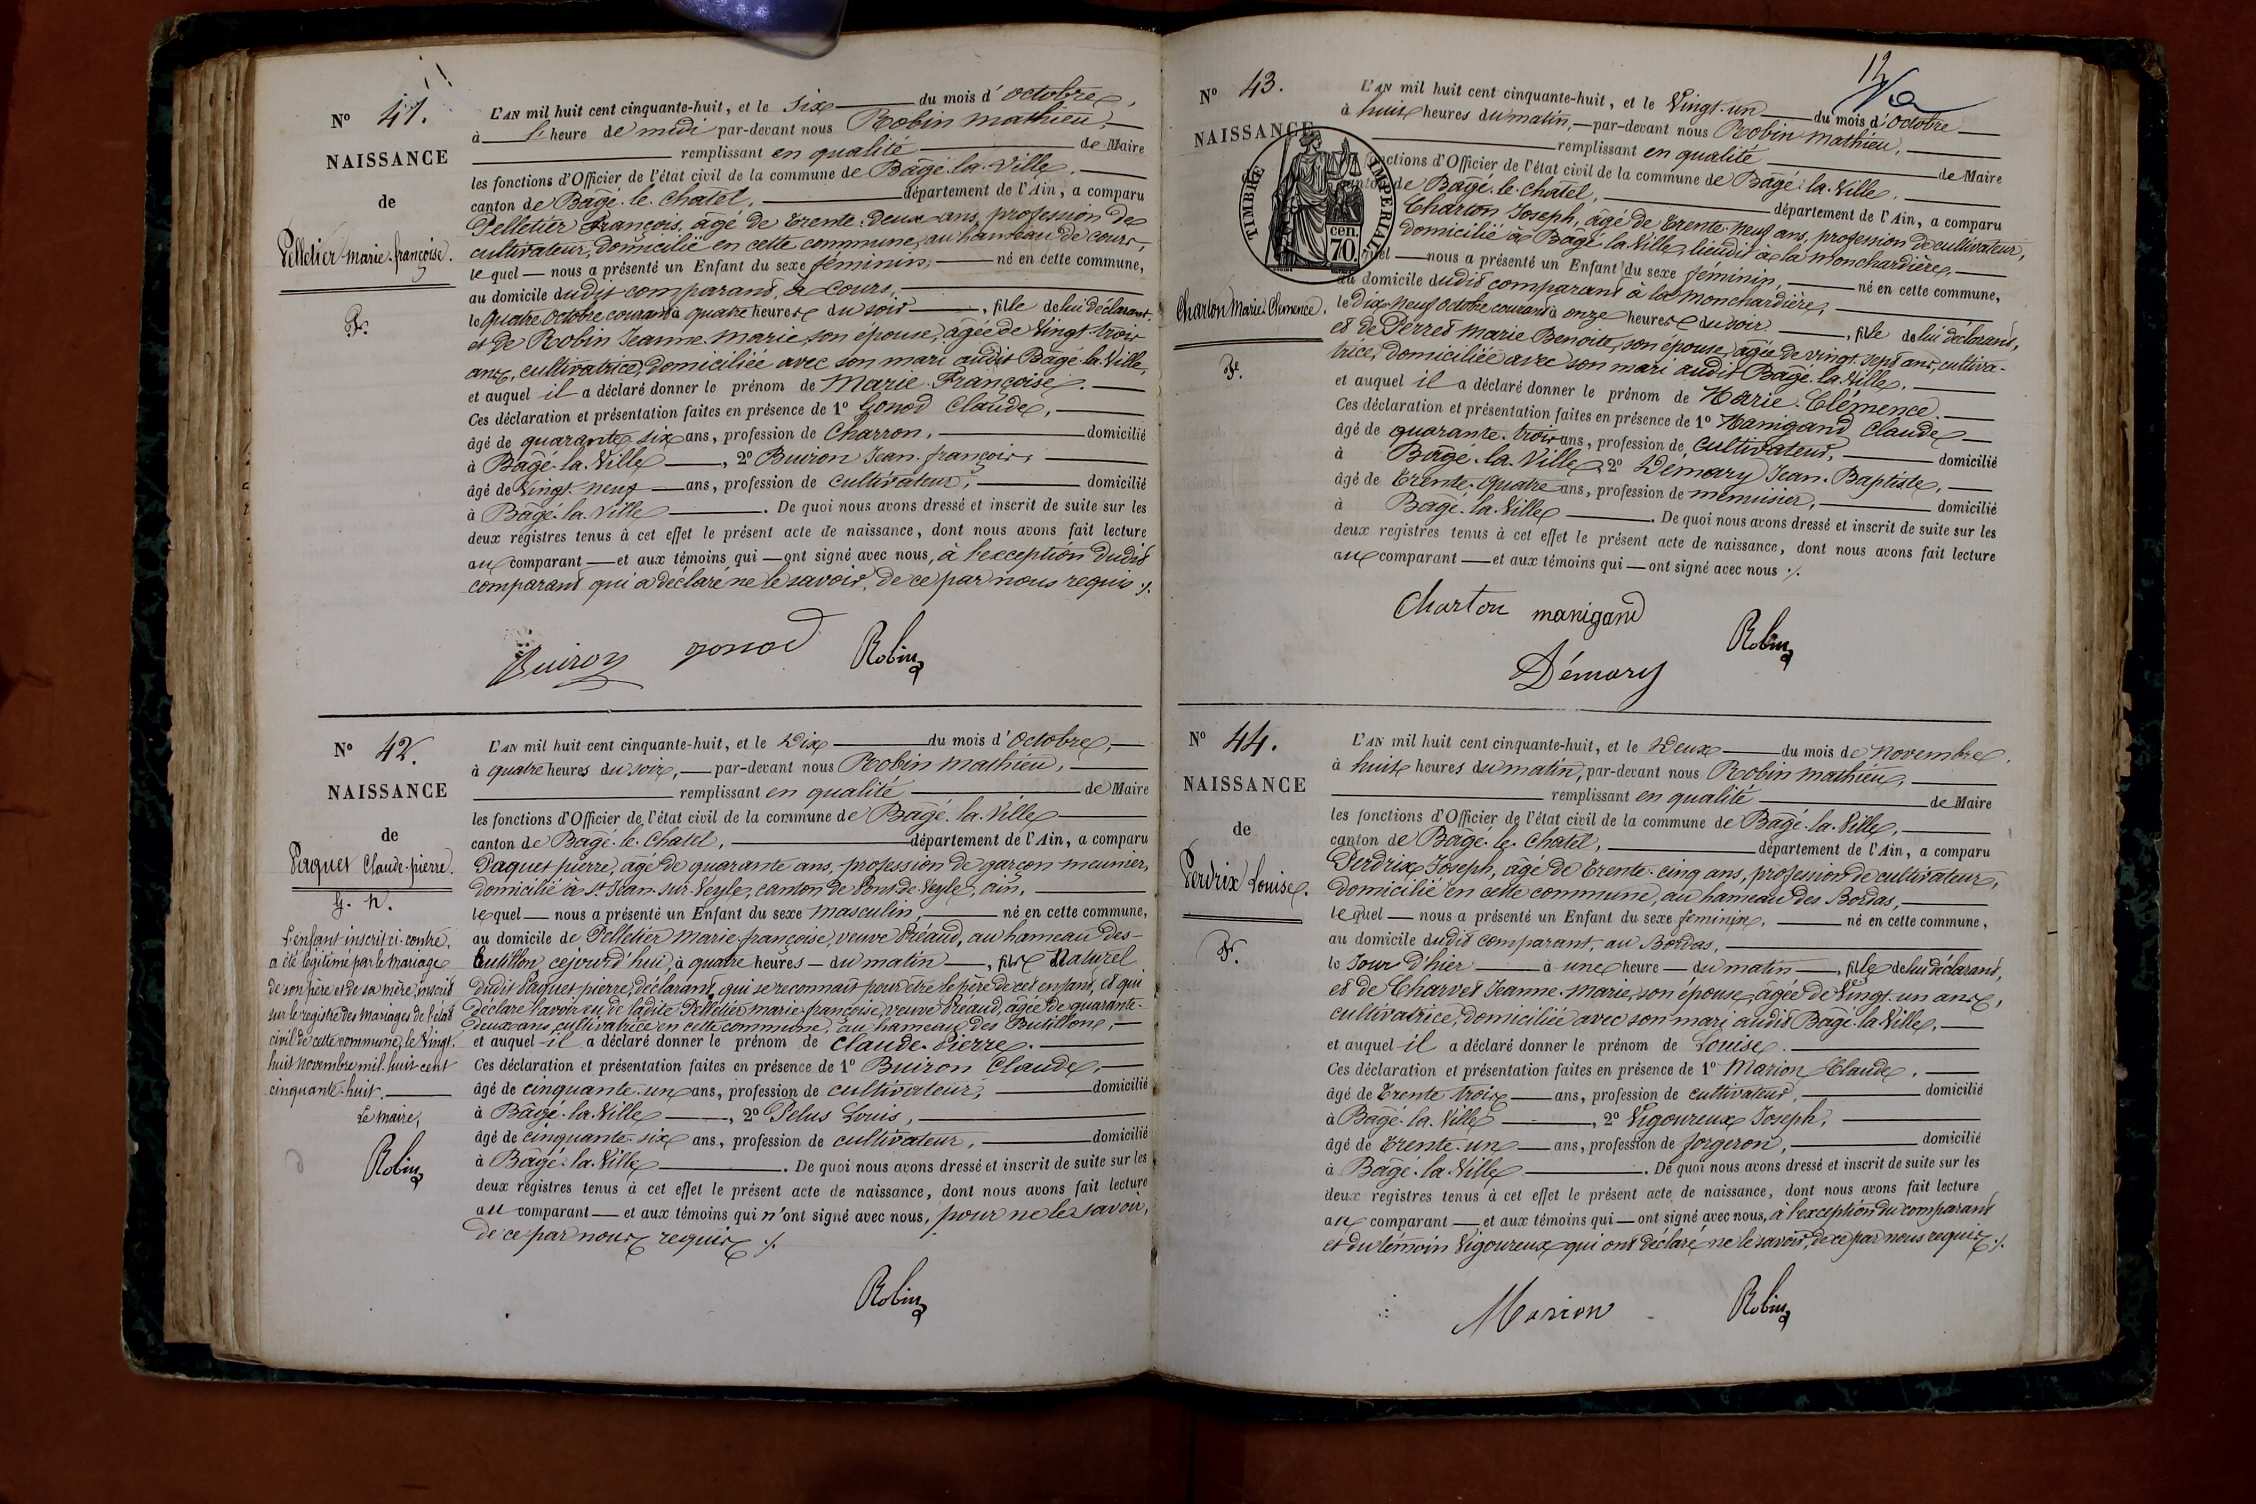 N° 41.
NAISSANCE
de
Pelletier marie-françoise.
F.
L'AN mil huit cent cinquante-huit, et le six du mois d'octobre,
à l'heure de midi par-devant nous Robin Mathieu,
remplissant en qualité de Maire
les fonctions d'Officier de l'état civil de la commune de Bâgé-la-Ville,
canton de Bâgé-le-Chatel, département de l'Ain, a comparu
Pelletier François, âgé de trente-deux ans, profession de
cultivateur, domicilié en cette commune, au hameau de cours,
lequel nous a présenté un Enfant du sexe féminin, né en cette commune,
au domicile dudit comparant, à Cours,
le quatre octobre courant à quatre heures du soir, fille de lui déclarant,
et de Robin Jeanne-Marie son épouse, âgée de vingt-trois
ans, cultivatrice, domiciliée avec son mari audit Bâgé-la-Ville,
et auquel il a déclaré donner le prénom de Marie-Françoise.
Ces déclaration et présentation faites en présence de 1° Gonod Claude,
âgé de quarante-six ans, profession de Charron, domicilié
à Bâgé-la-Ville, 2° Buiron Jean-françois,
âgé de vingt-neuf ans, profession de cultivateur, domicilié
à Bâgé-la-Ville. De quoi nous avons dressé et inscrit de suite sur les
deux registres tenus à cet effet le présent acte de naissance, dont nous avons fait lecture
au comparant et aux témoins qui ont signé avec nous, à l'exception dudit
comparant qui a déclaré ne le savoir, de ce par nous requis ./.
Buiron gonod Robin
N° 42.
NAISSANCE
de
Paquet Claude-pierre.
G. n.
L'enfant inscrit ci-contre,
a été légitimé par le mariage
de son père et de sa mère, inscrit
sur le registre des mariages de l'état
civil de cette commune, le vingt-
huit novembre mil-huit cent
cinquante-huit.
Le Maire,
Robin
L'AN mil huit cent cinquante-huit, et le Dix du mois d'octobre,
à quatre heures du soir, par-devant nous Robin Mathieu,
remplissant en qualité de Maire
les fonctions d'Officier de l'état civil de la commune de Bâgé-la-Ville
canton de Bâgé-le-Chatel, département de l'Ain, a comparu
Paquet pierre, âgé de quarante ans, profession de garçon meunier,
domicilié à St Jean-sur-Veyle, canton de Pont-de-Veyle, ain,
lequel nous a présenté un Enfant du sexe masculin, né en cette commune,
au domicile de Pelletier Marie-françoise, veuve Préaud, au hameau des-
Cutillon cejourd'hui, à quatre heures du matin, fils Naturel
dudit Paquet pierre, déclarant, qui se reconnait pour être le père de cet enfant, et qui
déclare l'avoir eu de ladite Pelletier marie-françoise, veuve Préaud, âgée de quarante-
deux ans, cultivatrice en cette commune, au hameau des
et auquel il a déclaré donner le prénom de Claude-Pierre.
Ces déclaration et présentation faites en présence de 1° Buiron Claude,
âgé de cinquante-un ans, profession de cultivateur, domicilié
à Bâgé-la-Ville, 2° Pelus Louis,
âgé de cinquante-six ans, profession de cultivateur, domicilié
à Bâgé-la-Ville. De quoi nous avons dressé et inscrit de suite sur les
deux registres tenus à cet effet le présent acte de naissance, dont nous avons fait lecture
au comparant et aux témoins qui n'ont signé avec nous, pour ne le savoir,
de ce par nous requis ./.
Robin
12
N° 43.
NAISSANCE
TIMBRE IMPERIAL
cen.
70.
Charton Marie-Clémence.
F.
L'AN mil huit cent cinquante-huit, et le Vingt-un du mois d'octobre
à huit heures du matin, par-devant nous Robin Mathieu,
remplissant en qualité de Maire
fonctions d'Officier de l'état civil de la commune de Bâgé-la-Ville,
canton de Bâgé-le-Chatel, département de l'Ain, a comparu
Charton Joseph, âgé de trente-neuf ans, profession de cultivateur,
domicilié à Bâgé-la-Ville, lieudit à la Monchardière,
lequel nous a présenté un Enfant du sexe féminin, né en cette commune,
au domicile dudit comparant à la Monchardière,
le dix-neuf octobre courant à onze heures du soir, fille de lui déclarant,
et de Perret Marie Benoite, son épouse, âgée de vingt-sept ans, cultiva-
trice, domiciliée avec son mari audit Bâgé-la-Ville,
et auquel il a déclaré donner le prénom de Marie-Clémence.
Ces déclaration et présentation faites en présence de 1° Manigand Claude
âgé de quarante-trois ans, profession de cultivateur, domicilié
à Bâgé-la-Ville, 2° Démary Jean-Baptiste,
âgé de trente-quatre ans, profession de menuisier, domicilié
à Bâgé-la-Ville. De quoi nous avons dressé et inscrit de suite sur les
deux registres tenus à cet effet le présent acte de naissance, dont nous avons fait lecture
au comparant et aux témoins qui ont signé avec nous ./.
Charton manigand Robin
Démary
N° 44.
NAISSANCE
de
Perdrix Louise.
F.
L'AN mil huit cent cinquante-huit, et le Deux du mois de novembre,
à huit heures du matin, par-devant nous Robin Mathieu,
remplissant en qualité de Maire
les fonctions d'Officier de l'état civil de la commune de Bâgé-la-Ville,
canton de Bâgé-le-Chatel, département de l'Ain, a comparu
Perdrix Joseph, âgé de trente-cinq ans, profession de cultivateur,
domicilié en cette commune, au hameau des Bordas,
lequel nous a présenté un Enfant du sexe féminin, né en cette commune,
au domicile dudit comparant, au Bordas,
le Jour d'hier à une heure du matin, fille de lui déclarant,
et de Charvet Jeanne-Marie, son épouse, âgée de vingt-un ans,
cultivatrice, domiciliée avec son mari audit Bâgé-la-Ville,
et auquel il a déclaré donner le prénom de Louise.
Ces déclaration et présentation faites en présence de 1° Marion Claude,
âgé de trente-trois ans, profession de cultivateur, domicilié
à Bâgé-la-Ville, 2° Vigoureux Joseph,
âgé de trente-un ans, profession de forgeron, domicilié
à Bâgé-la-Ville. De quoi nous avons dressé et inscrit de suite sur les
deux registres tenus à cet effet le présent acte de naissance, dont nous avons fait lecture
au comparant et aux témoins qui ont signé avec nous, à l'exception du comparant
et du témoin Vigoureux qui ont déclaré ne le savoir, de ce par nous requis ./.
Marion Robin